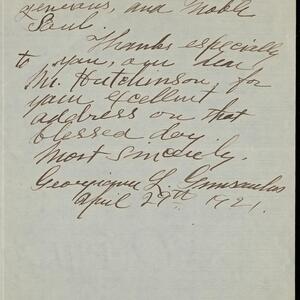 generous, and Noble
Soul.
Thanks especially
to you, our dear
Mr. Hutchinson, for
your excellent
address on that
blessed day.
Most sincerely,
Georgiana L. Gunsaulus
April 29th 1921.